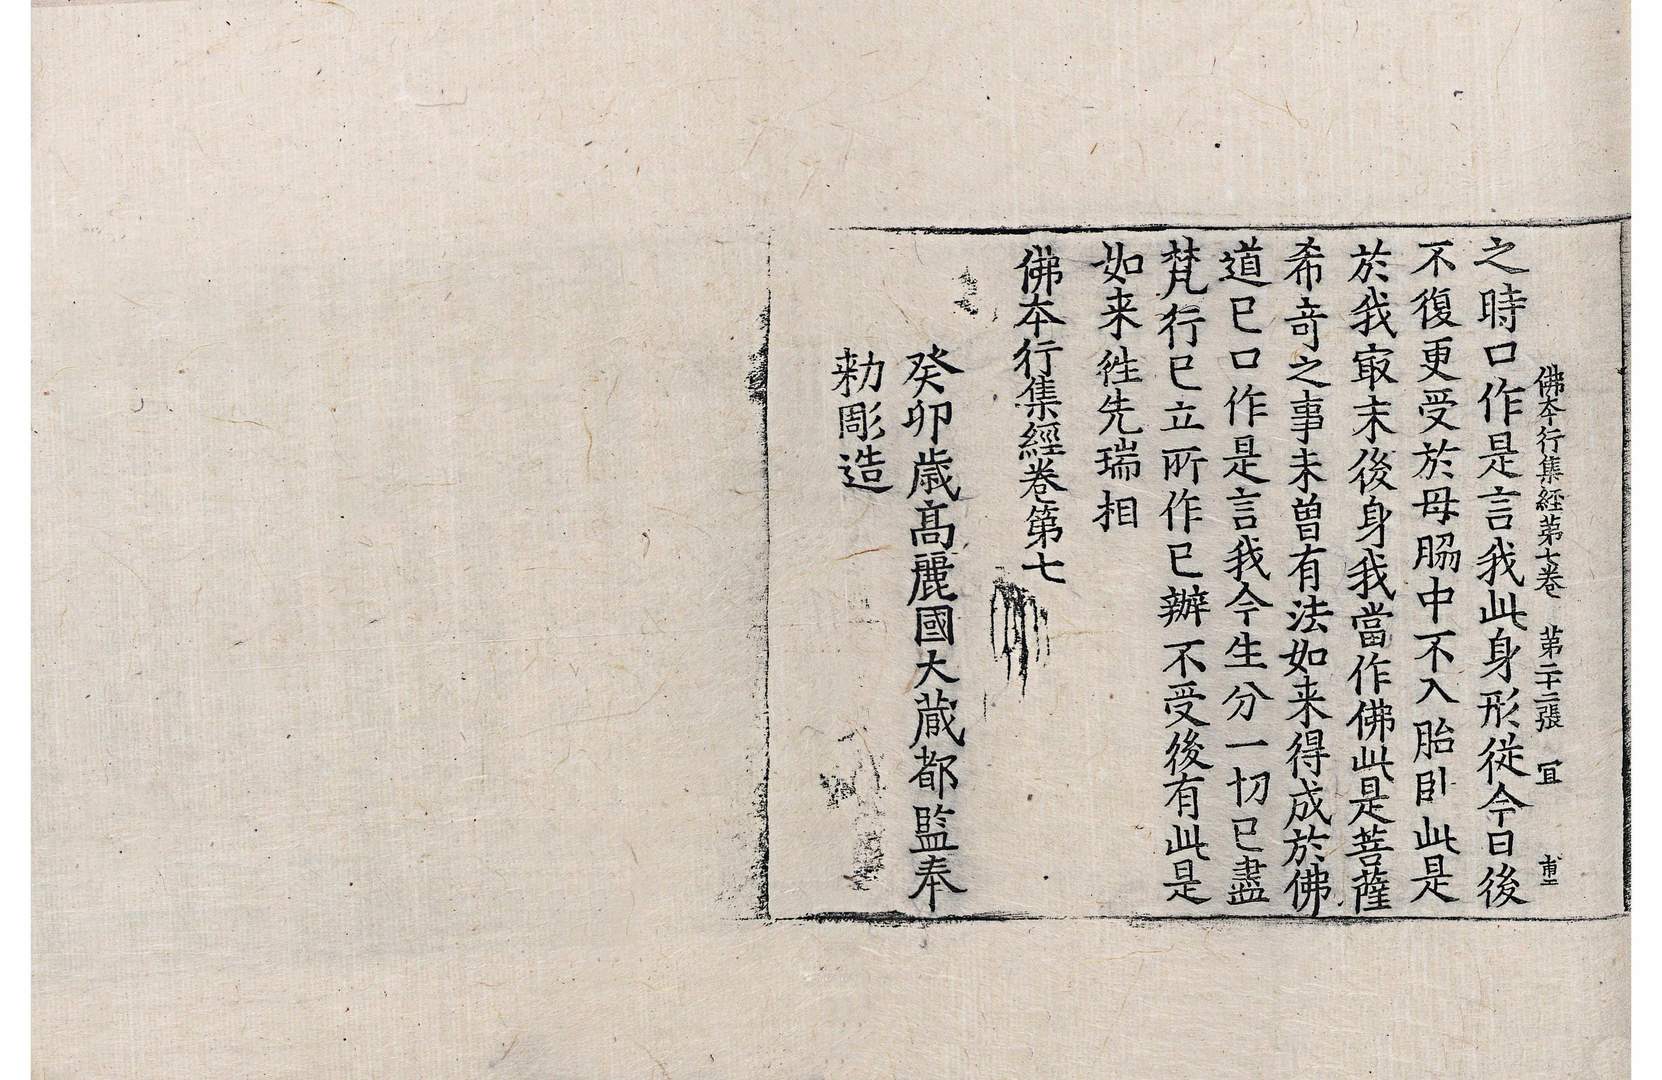 佛本行集經第七卷　第二十二張　冝　甫二
之時口作是言我此身形從今日後
不復更受於母脇中不入胎卧此是
於我㝡末後身我當作佛此是菩薩
希竒之事未曽有法如来得成於佛
道已口作是言我今生分一切已盡
梵行已立所作已辦不受後有此是
如来徃先瑞相
佛本行集經卷第七
癸卯歳髙麗國大蔵都監奉
勑彫造